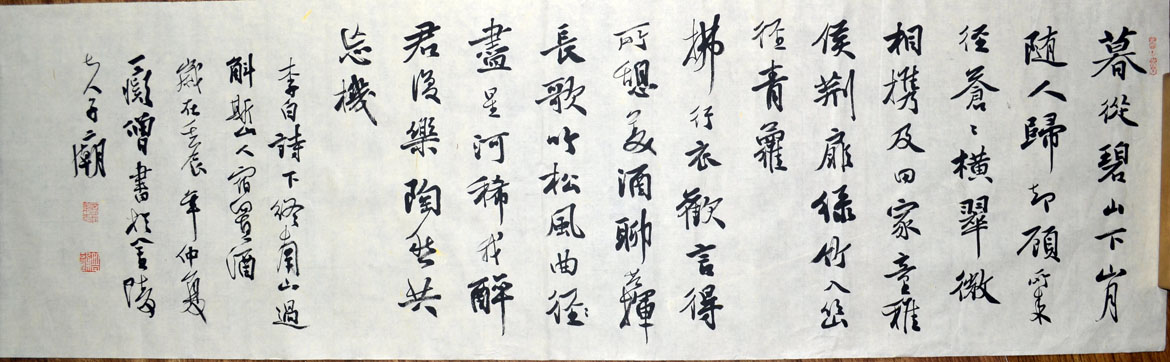 暮從碧山下山月
随人歸却顧所来
径蒼々横翠微
相携及田家童稚
侯荆扉緑竹入幽
径青蘿
拂行衣歡言得
所憩美酒聊共揮
長歌吟松風曲径
盡星河稀我醉
君復樂陶然共
忘機
李白詩下終南山過
斛斯山人宿置酒
歲在壬辰年仲夏
僧書於金陵
夫子廟